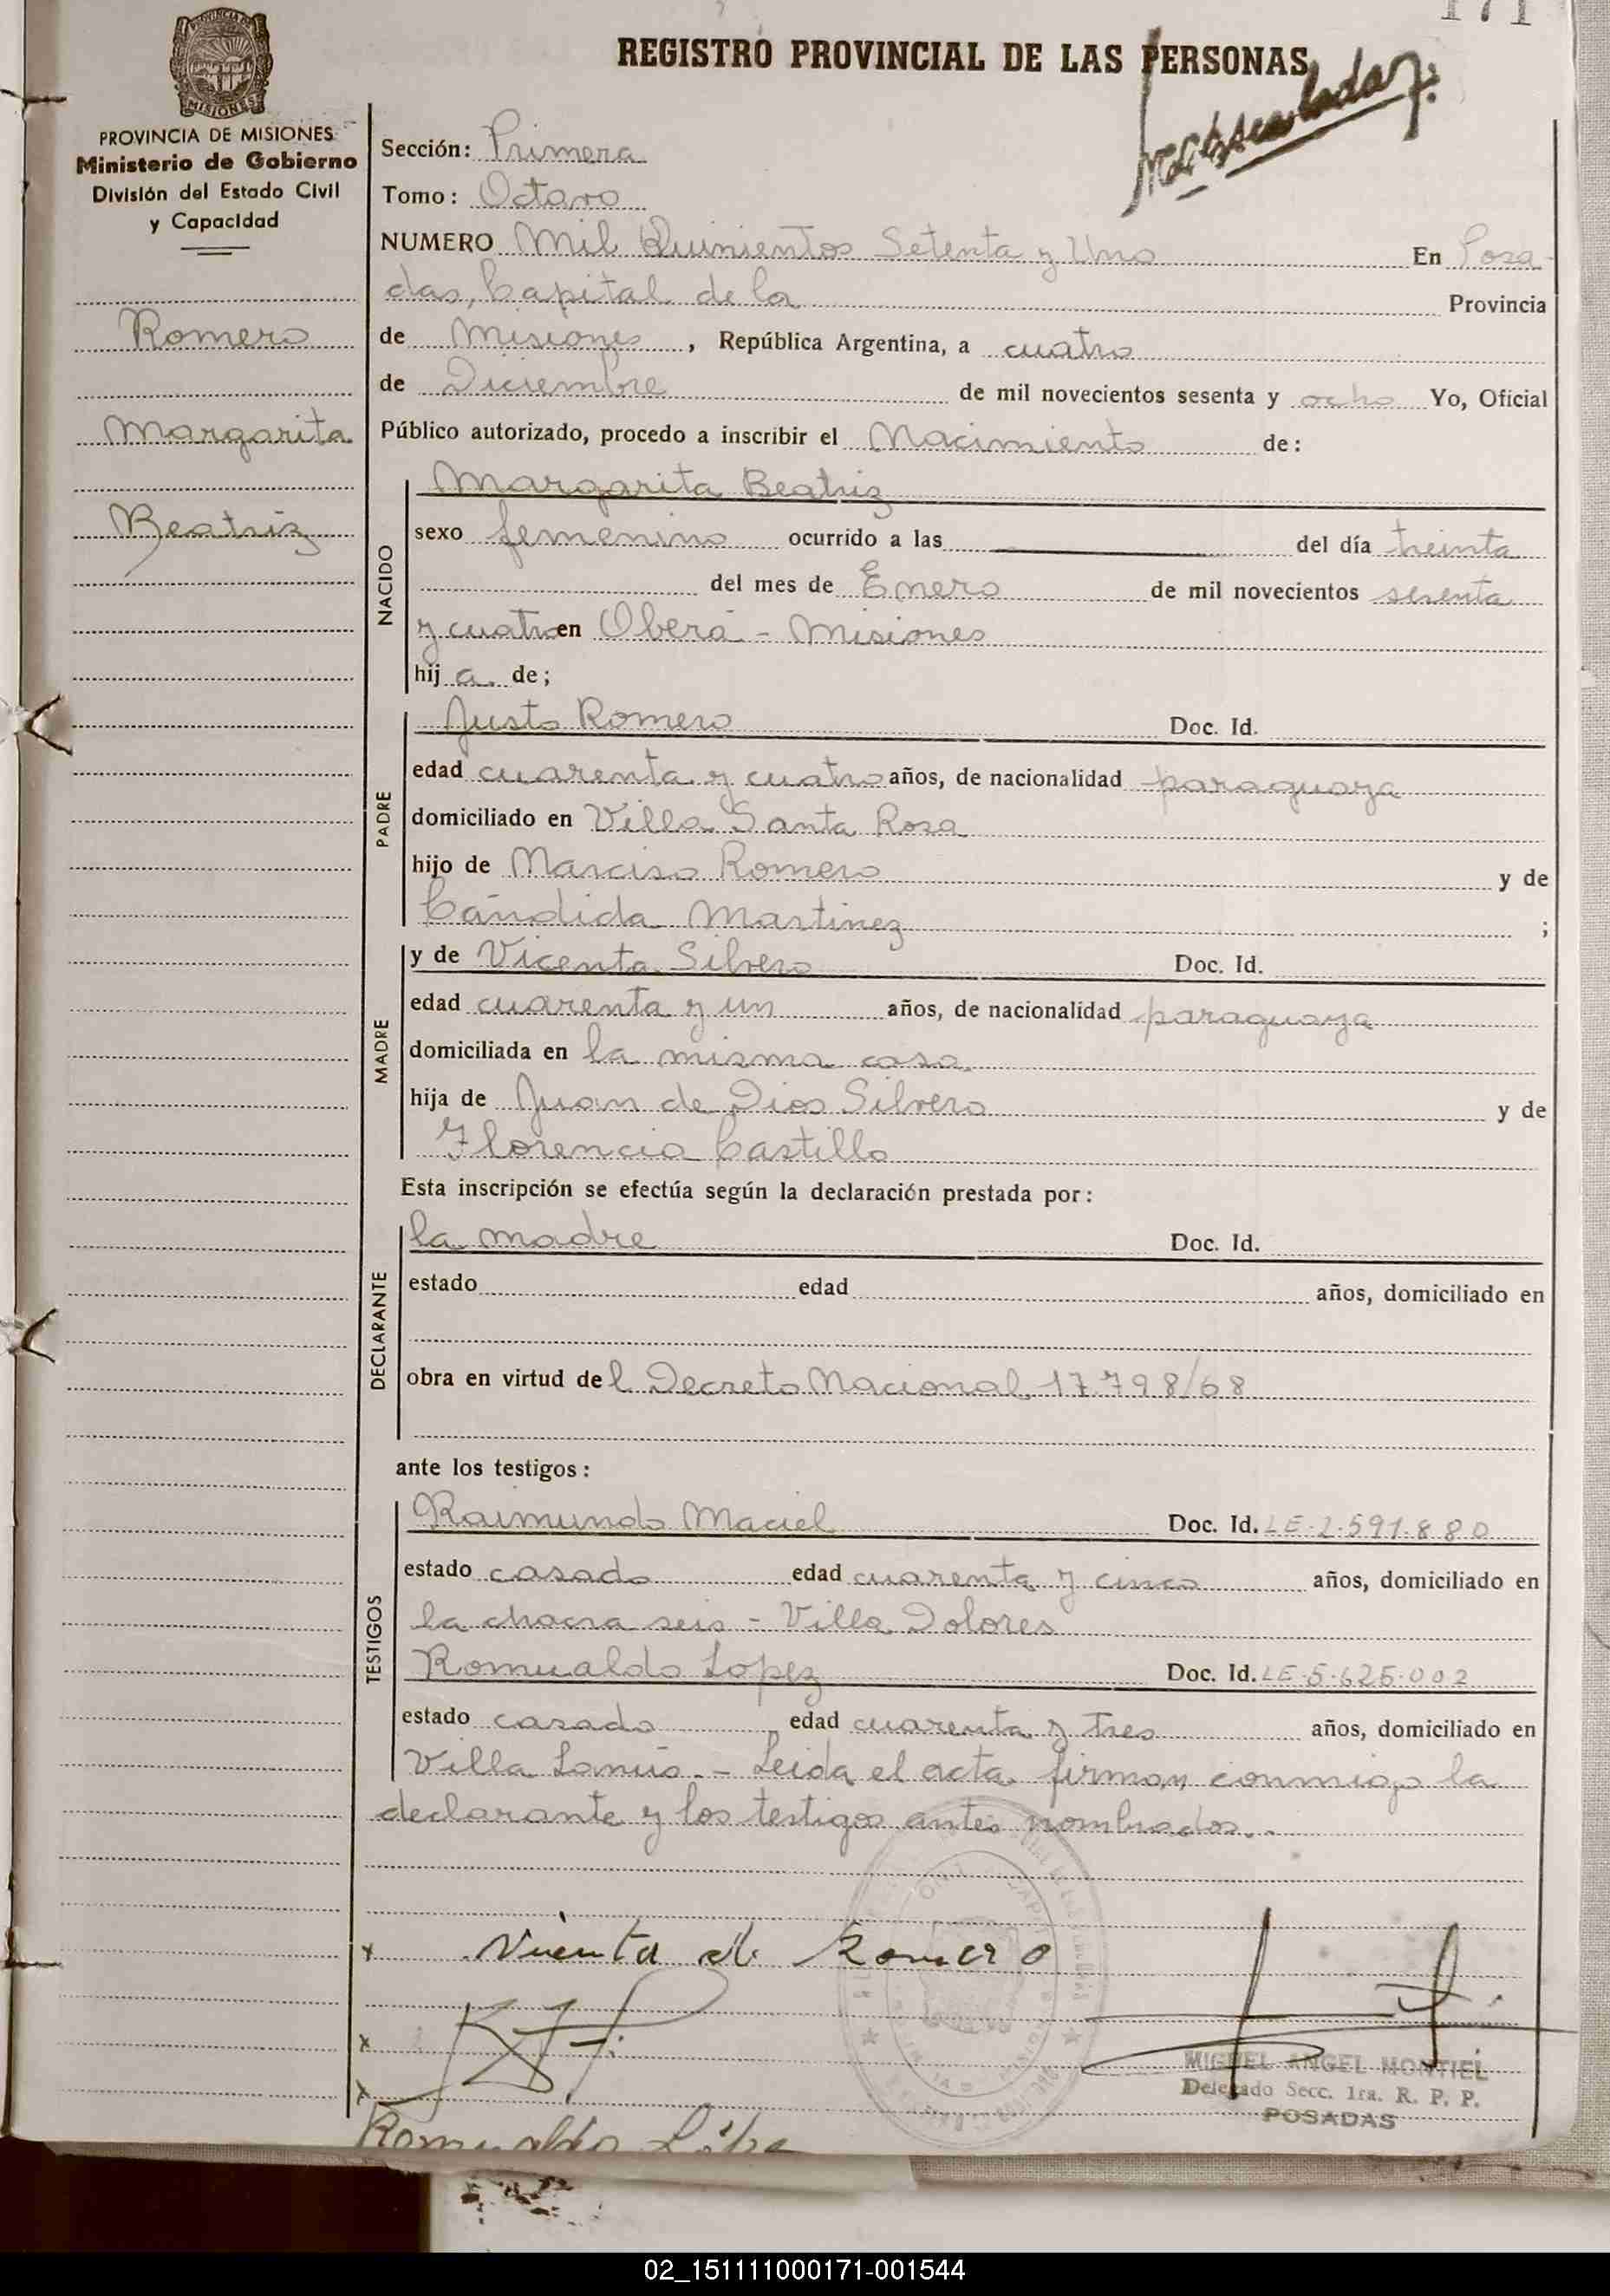 171
REGISTRO PROVINCIAL DE LAS PERSONAS
PROVINCIA DE MISIONES
Ministerio de Gobierno
División del Estado Civil
y Capacidad
Romero
Margarita
Beatriz
Sección: Primera
Tomo: Octavo
NUMERO Mil Quinientos Setenta y Uno En Posa-
das, Capital de la Provincia
de Misiones, República Argentina, a cuatro
de Diciembre de mil novecientos sesenta y ocho Yo, Oficial
Público autorizado, procedo a inscribir el Nacimiento de:
NACIDO
Margarita Beatriz
sexo femenino ocurrido a las del día treinta
del mes de Enero de mil novecientos sesenta
y cuatro en Oberá - Misiones
hija de;
PADRE
Justo Romero Doc. Id.
edad cuarenta y cuatro años, de nacionalidad paraguaya
domiciliado en Villa Santa Rosa
hijo de Narciso Romero y de
Cándida Martinez ;
MADRE
y de Vicenta Silvero Doc. Id.
edad cuarenta y un años, de nacionalidad paraguaya
domiciliada en la misma casa
hija de Juan de Dios Silvero y de
Florencia Castillo
Esta inscripción se efectúa según la declaración prestada por:
DECLARANTE
la madre Doc. Id.
estado edad años, domiciliado en
obra en virtud del Decreto Nacional 17.798/68
ante los testigos:
TESTIGOS
Raimundo Maciel Doc. Id. LE-2.591.880
estado casado edad cuarenta y cinco años, domiciliado en
la chacra seis - Villa Dolores
Romualdo Lopez Doc. Id. LE-5.625.002
estado casado edad cuarenta y tres años, domiciliado en
Villa Lanús.- Leida el acta firman conmigo la
declarante y los testigos antes nombrados.-
x Vicenta de Romero
x
x
Romualdo López
MIGUEL ANGEL MONTIEL
Delegado Secc. 1ra. R. P. P.
POSADAS
02_151111000171-001544